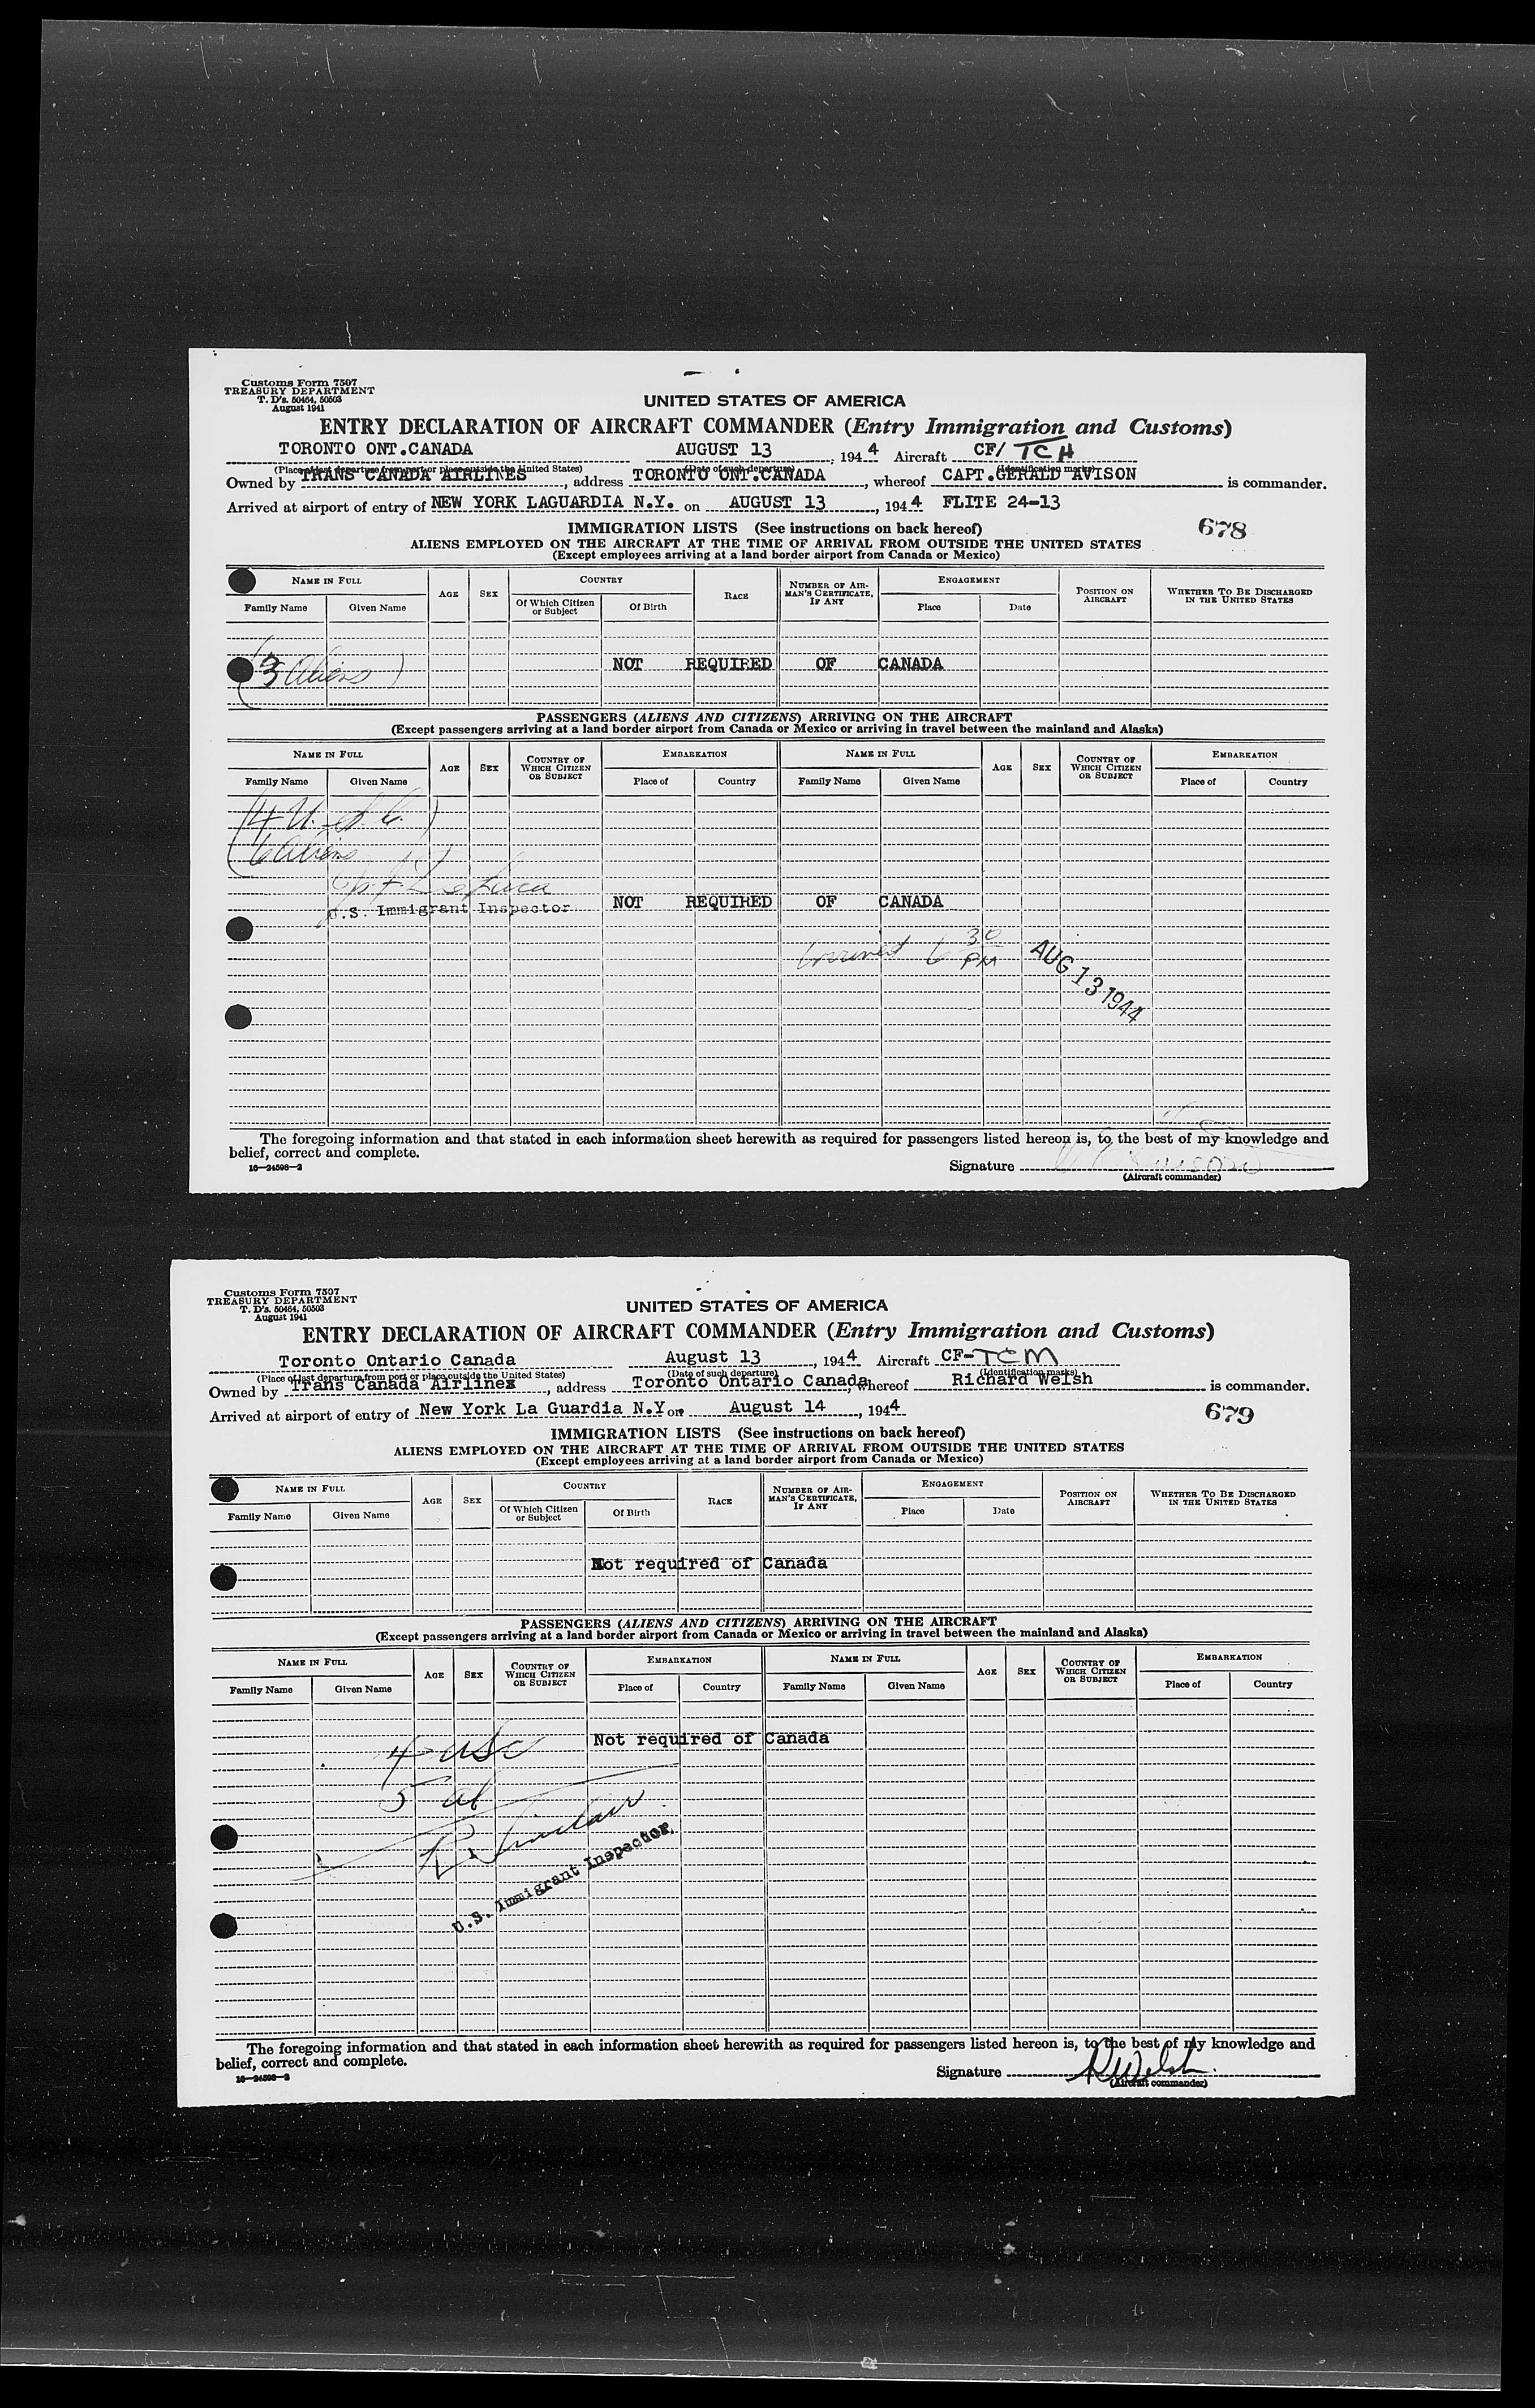 Customs Form 7507
TREASURY DEPARTMENT
T. D's. 50464, 50503
August 1941
UNITED STATES OF AMERICA
ENTRY DECLARATION OF AIRCRAFT COMMANDER (Entry Immigration and Customs)
TORONTO ONT.CANADA AUGUST 13, 1944 Aircraft CF/ TCH
(Place of last departure from port or place outside the United States) (Date of such departure) (Identification marks)
Owned by TRANS CANADA AIRLINES, address TORONTO ONT.CANADA, whereof CAPT.GERALD AVISON is commander.
Arrived at airport of entry of NEW YORK LAGUARDIA N.Y. on AUGUST 13, 1944 FLITE 24-13
IMMIGRATION LISTS (See instructions on back hereof) 678
ALIENS EMPLOYED ON THE AIRCRAFT AT THE TIME OF ARRIVAL FROM OUTSIDE THE UNITED STATES
(Except employees arriving at a land border airport from Canada or Mexico)
NAME IN FULL AGE SEX COUNTRY RACE NUMBER OF AIRMAN'S CERTIFICATE, IF ANY ENGAGEMENT POSITION ON AIRCRAFT WHETHER TO BE DISCHARGED IN THE UNITED STATES
Family Name Given Name Of Which Citizen or Subject Of Birth Place Date
(3 Aliens) NOT REQUIRED OF CANADA
PASSENGERS (ALIENS AND CITIZENS) ARRIVING ON THE AIRCRAFT
(Except passengers arriving at a land border airport from Canada or Mexico or arriving in travel between the mainland and Alaska)
NAME IN FULL AGE SEX COUNTRY OF WHICH CITIZEN OR SUBJECT EMBARKATION NAME IN FULL AGE SEX COUNTRY OF WHICH CITIZEN OR SUBJECT EMBARKATION
Family Name Given Name Place of Country Family Name Given Name Place of Country
(4 U.S.C.)
(6 Aliens
U.S. Immigrant Inspector NOT REQUIRED OF CANADA
6 30 PM AUG 13 1944
The foregoing information and that stated in each information sheet herewith as required for passengers listed hereon is, to the best of my knowledge and
belief, correct and complete.
16—24598-2 Signature
(Aircraft commander)
Customs Form 7507
TREASURY DEPARTMENT
T. D's. 50464, 50503
August 1941
UNITED STATES OF AMERICA
ENTRY DECLARATION OF AIRCRAFT COMMANDER (Entry Immigration and Customs)
Toronto Ontario Canada August 13, 1944 Aircraft CF-TCM
(Place of last departure from port or place outside the United States) (Date of such departure) (Identification marks)
Owned by Trans Canada Airlines, address Toronto Ontario Canada, whereof Richard Welsh is commander.
Arrived at airport of entry of New York La Guardia N.Y on August 14, 1944
679
IMMIGRATION LISTS (See instructions on back hereof)
ALIENS EMPLOYED ON THE AIRCRAFT AT THE TIME OF ARRIVAL FROM OUTSIDE THE UNITED STATES
(Except employees arriving at a land border airport from Canada or Mexico)
NAME IN FULL AGE SEX COUNTRY RACE NUMBER OF AIRMAN'S CERTIFICATE, IF ANY ENGAGEMENT POSITION ON AIRCRAFT WHETHER TO BE DISCHARGED IN THE UNITED STATES
Family Name Given Name Of Which Citizen or Subject Of Birth Place Date
Not required of Canada
PASSENGERS (ALIENS AND CITIZENS) ARRIVING ON THE AIRCRAFT
(Except passengers arriving at a land border airport from Canada or Mexico or arriving in travel between the mainland and Alaska)
NAME IN FULL AGE SEX COUNTRY OF WHICH CITIZEN OR SUBJECT EMBARKATION NAME IN FULL AGE SEX COUNTRY OF WHICH CITIZEN OR SUBJECT EMBARKATION
Family Name Given Name Place of Country Family Name Given Name Place of Country
4 USC Not required of Canada
5 al
R. Sinclair
U.S. Immigrant Inspector.
The foregoing information and that stated in each information sheet herewith as required for passengers listed hereon is, to the best of my knowledge and
belief, correct and complete.
16—24598-2 Signature R Welsh.
(Aircraft commander)